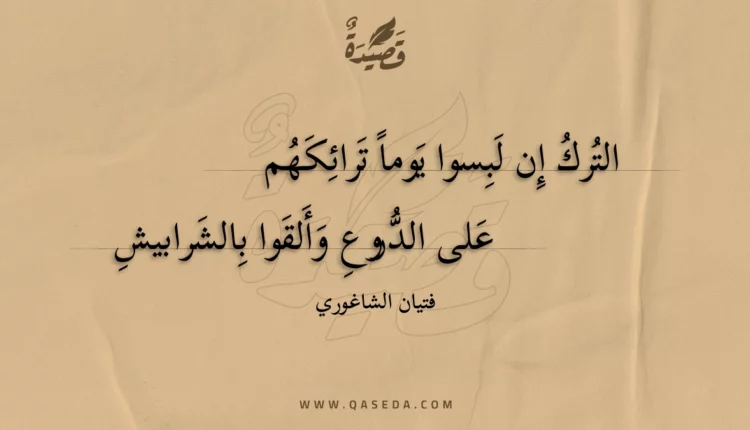 قَصِيْدَةٌ
التُركُ إِن لَبِسوا يَوماً تَرائِكَهُم
عَلى الدُّروعِ وَأَلقَوا بِالشَرابيشِ
فتيان الشاغوري
WWW.QASEDA.COM